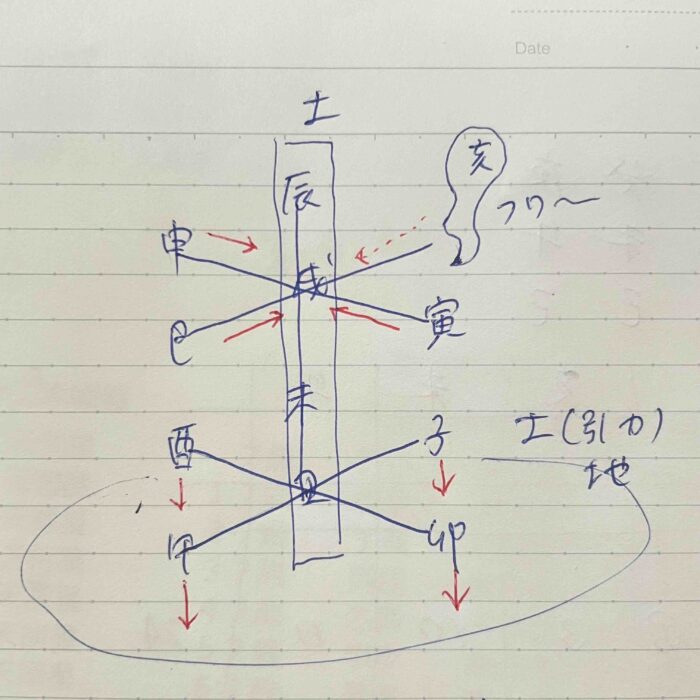 Date
土
亥
辰
フワ〜
申
戌
巳
寅
未
酉
子
土(引力)
地
丑
午
卯